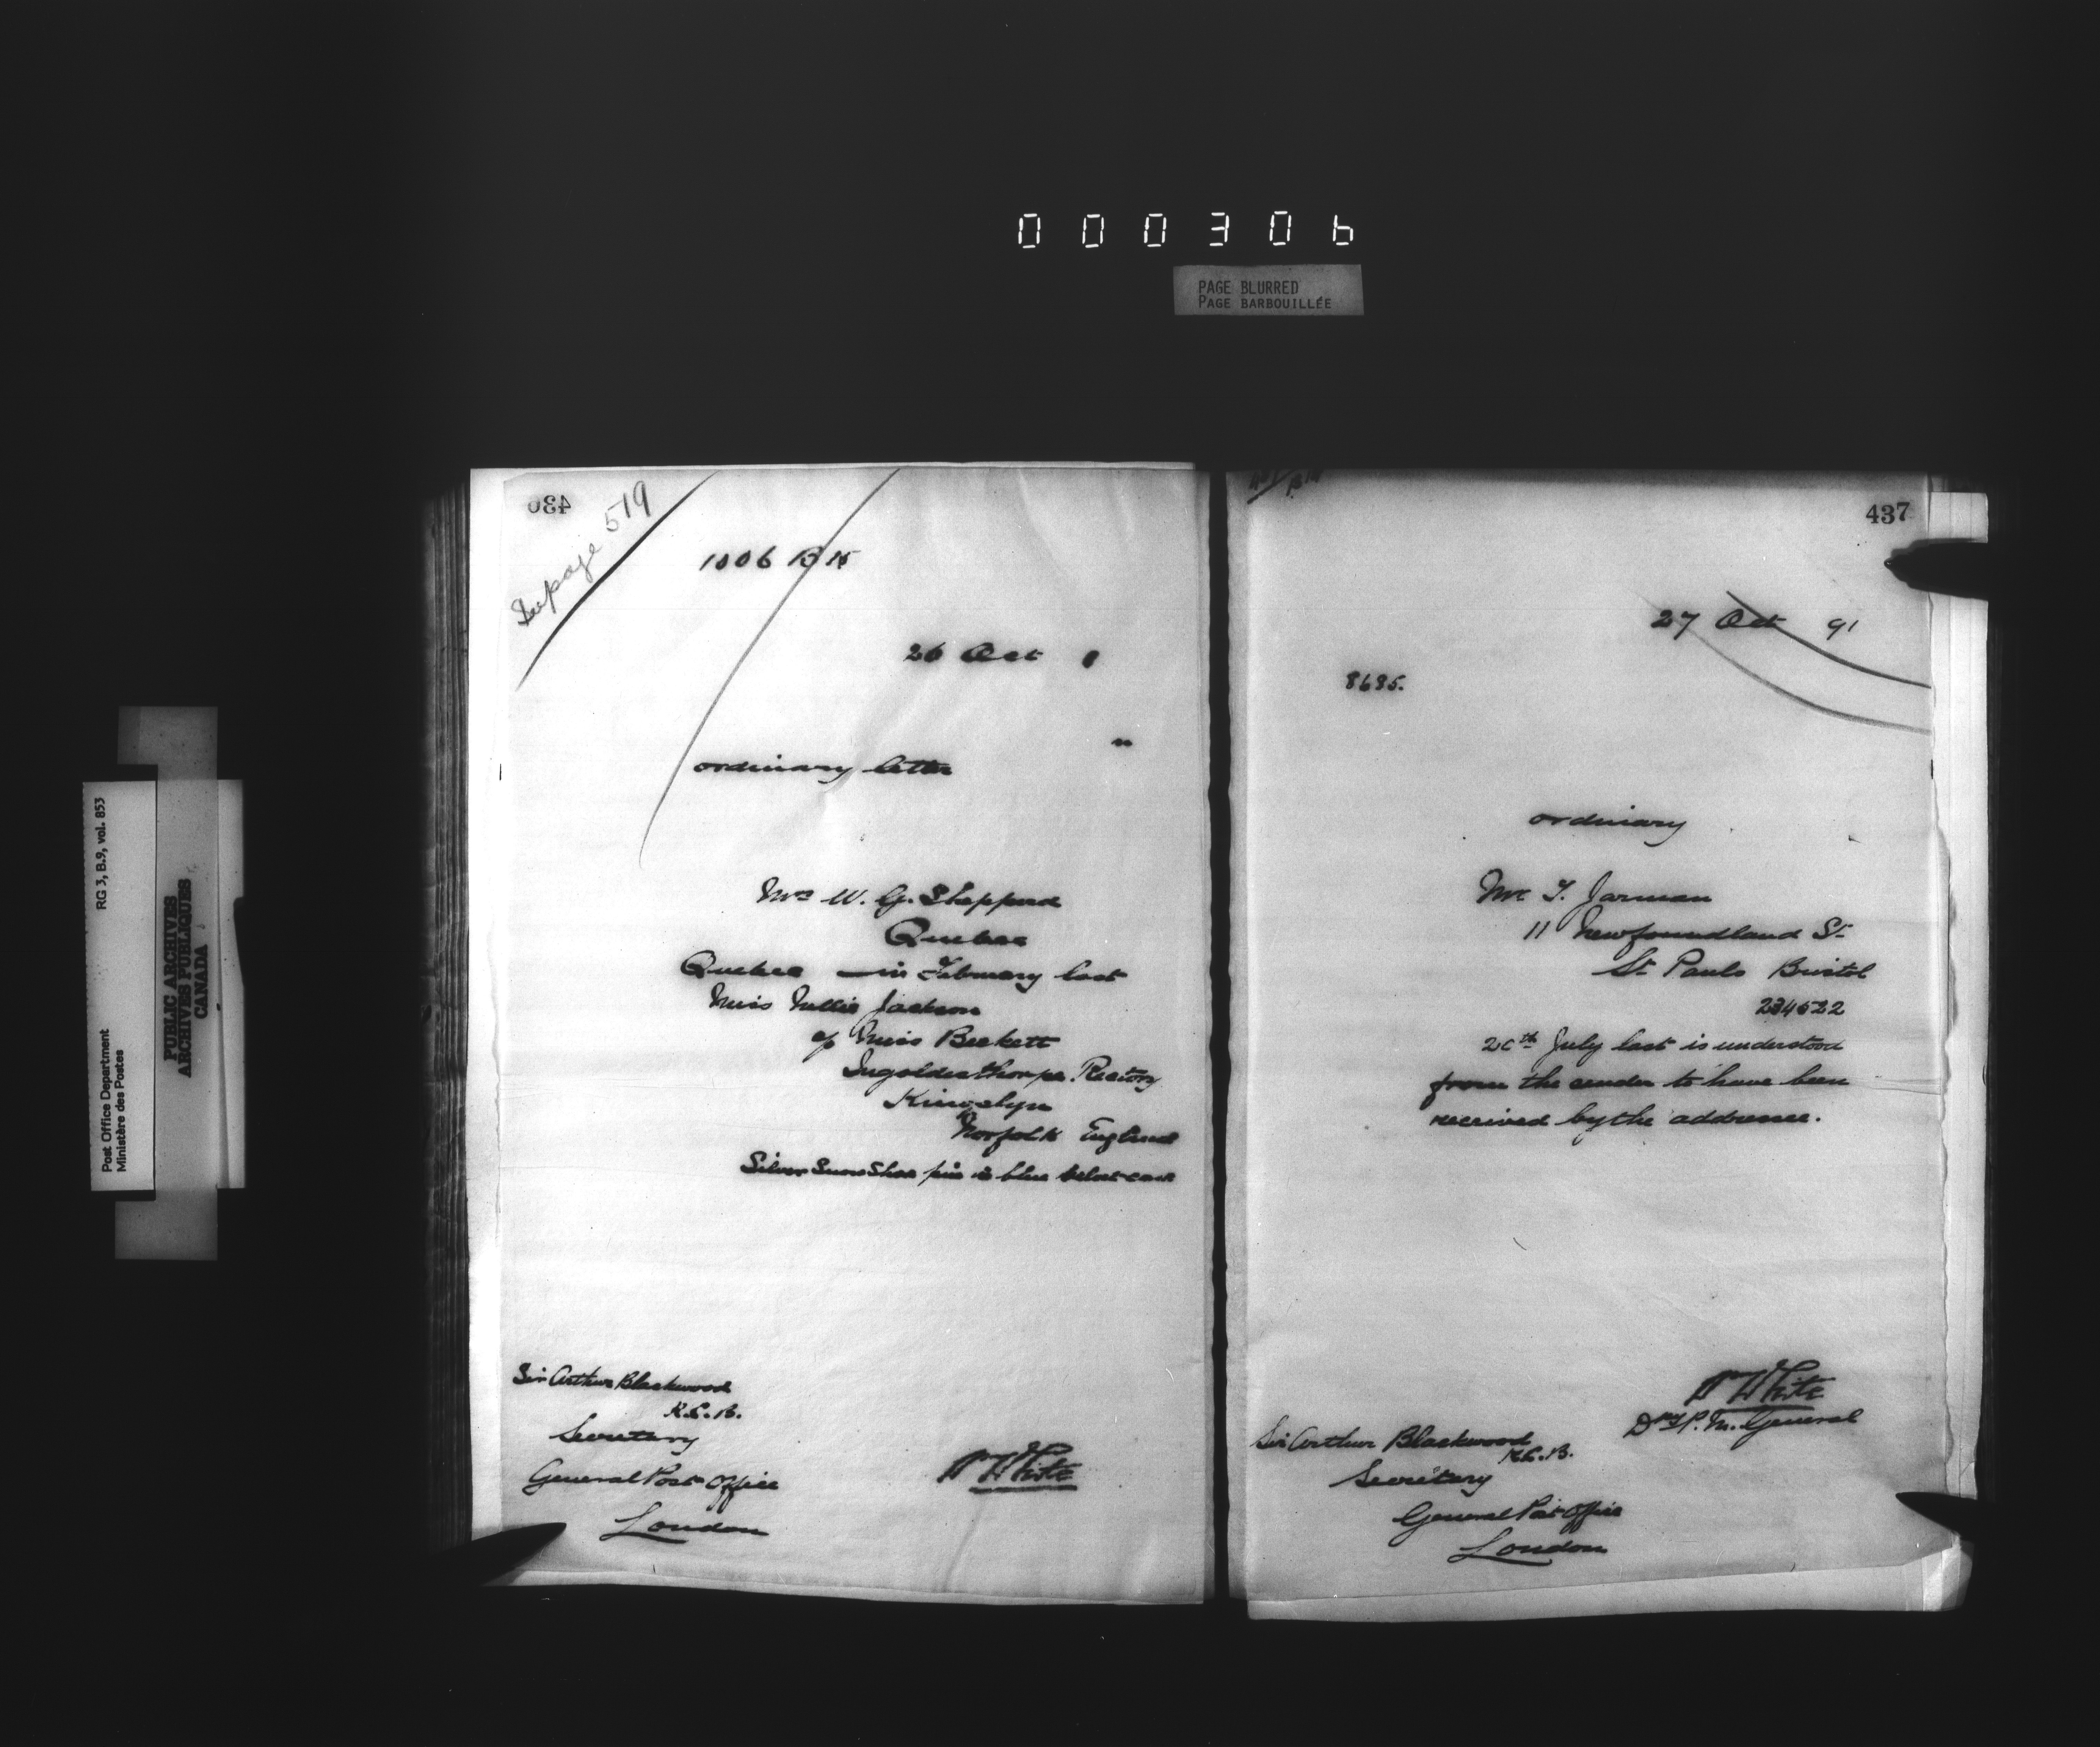 000306
PAGE BLURRED
PAGE BARBOUILLÉE
RG 3, B.9, vol. 853
Post Office Department
Ministère des Postes
PUBLIC ARCHIVES
ARCHIVES PUBLIQUES
CANADA
436
See page 519
1006 B
26 Oct
"
ordinary letter
Mrs W. G. Sheppard
Quebec
Quebec — in February last
Miss Nellie Jackson
c/o Miss Beckett
Ingoldesthorpe Rectory
Kings Lynn
Norfolk England
Silver Snow Shoe pin in blue velvet case
Sir Arthur Blackwood
K.C.B.
Secretary
General Post Office
London
W White
437
27 Oct 91
8635.
ordinary
Mr T. Jarman
11 Newfoundland St
St Pauls Bristol
234522
20th July last is understood
from the sender to have been
received by the addressee.
W White
Dpy P. M. General
Sir Arthur Blackwood
K.C.B.
Secretary
General Post Office
London